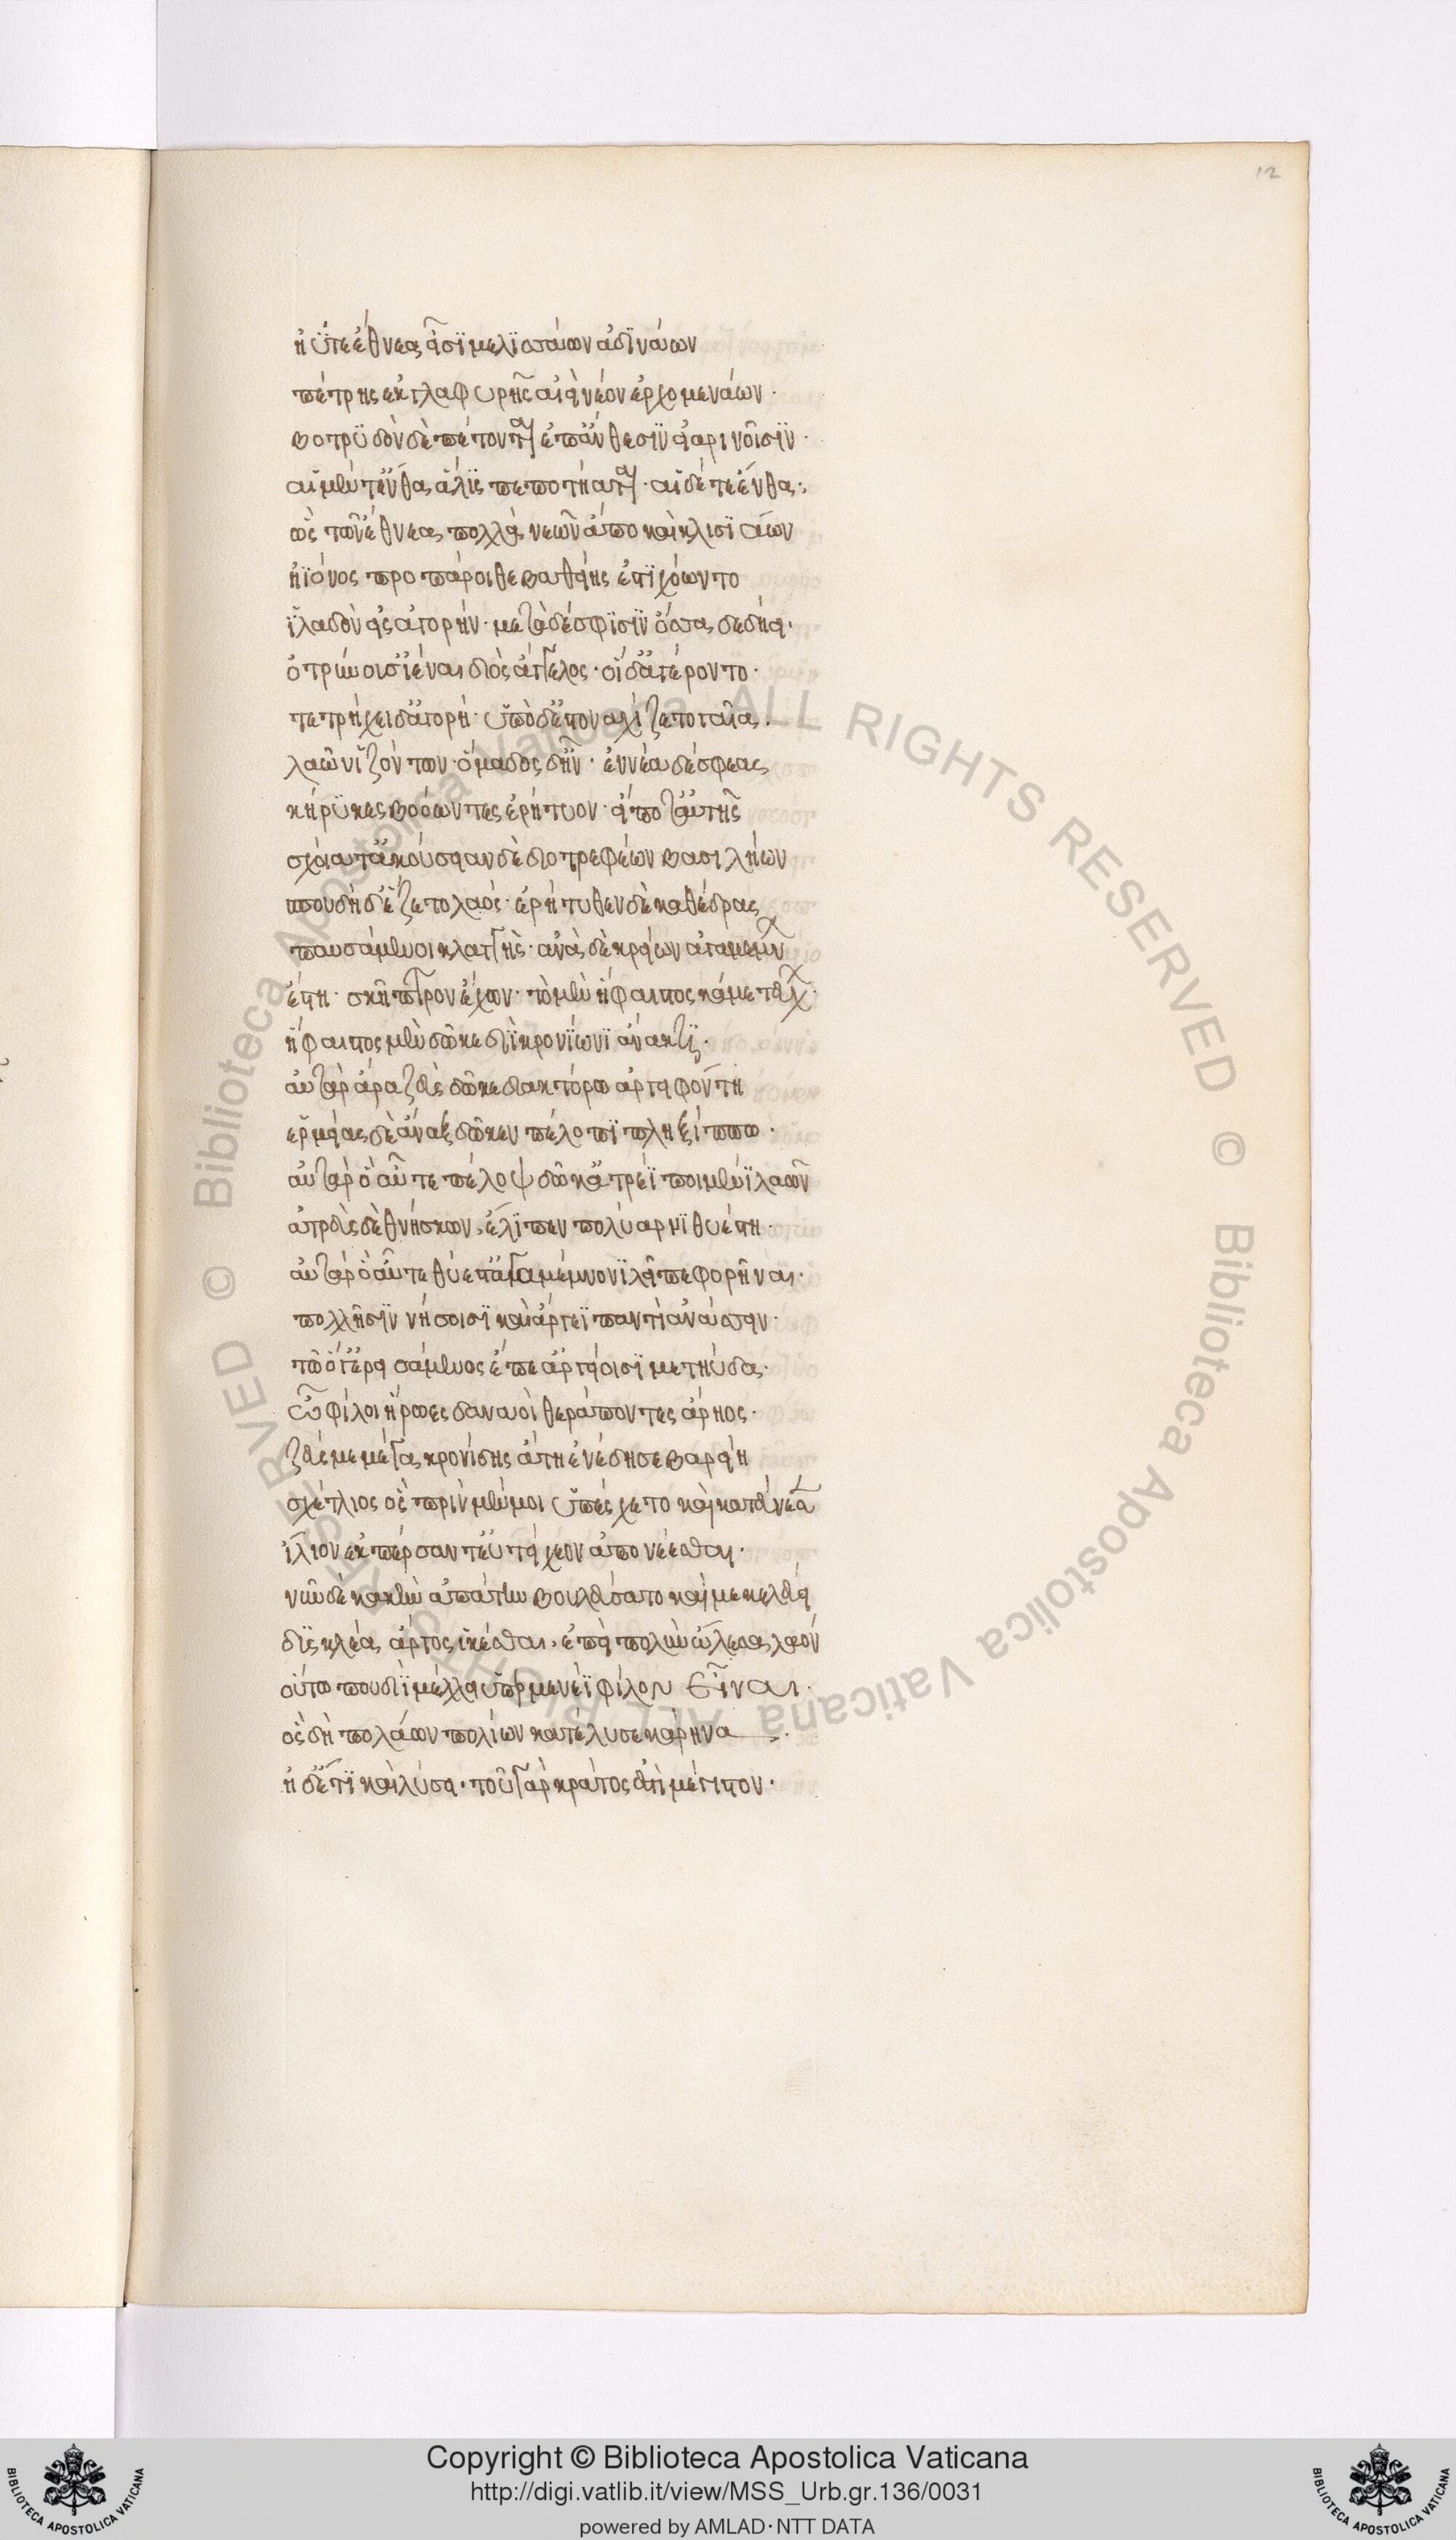 12
ἠΰτε ἔθνεα εἶσϊ μελϊσσάων ἀδϊνάων
πέτρης ἐκ γλαφυρῆς αἰεὶ νέον ἐρχομενάων·
βοτρϋδὸν δὲ πέτονται ἐπ' ἄνθεσϊν εἰαρινοῖσϊν·
αἱ μέν τ' ἔνθα ἅλϊς πεποτήαται· αἱ δέ τε ἔνθα·
ὣς τῶν ἔθνεα πολλὰ νεῶν ἄπο καὶ κλισϊάων
ἠϊόνος προπάροιθε βαθείης ἐστϊχόωντο
ἰλαδὸν εἰς ἀγορήν· μετὰ δέ σφϊσϊν ὄσσα δεδήει·
ὀτρύνουσ' ἰέναι διὸς ἄγγελος· οἱ δ' ἀγέροντο·
τετρήχει δ' ἀγορή· ὑπὸ δὲ στοναχίζετο γαῖα·
λαῶν ἱζόντων· ὅμαδος δ' ἦν· ἐννέα δέ σφεας
κήρϋκες βοόωντες ἐρήτυον· εἴποτ' ἀϋτῆς
σχοίατ' ἀκούσειαν δὲ διοτρεφέων βασιλήων
σπουδῇ δ' ἕζετο λαός· ἐρήτυθεν δὲ καθέδρας
παυσάμενοι κλαγγῆς· ἀνὰ δὲ κρείων ἀγαμέμνων
ἔστη· σκῆπτρον ἔχων· τὸ μὲν ἥφαιστος κάμε τεύχων·
ἥφαιστος μὲν δῶκε διῒ κρονϊωνϊ ἄνακτϊ·
αὐτὰρ ἄρα ζεὺς δῶκε διακτόρω ἀργειφόντη
ἑρμείας δὲ ἄναξ δῶκεν πέλοπϊ πληξίππω·
αὐτὰρ ὃ αὖτε πέλοψ δῶκ' ἀτρέϊ ποιμένϊ λαῶν
ἀτρεὺς δὲ θνήσκων, ἔλϊπεν πολύαρνϊ θυέστη·
αὐτὰρ ὃ αὖτε θυέστ' ἀγαμέμνονϊ λεῖπε φορῆναι·
πολλῆσϊν νήσοισϊ καὶ ἄργεϊ παντὶ ἀνάσσειν·
τῶ ὅγ' ἐρεισάμενος ἔπε' ἀργείοισϊ μετηύδα·
ὦ φίλοι ἥρωες δαναοὶ θεράποντες ἄρηος·
ζεύς με μέγας κρονίδης ἄτη ἐνέδησε βαρείη
σχέτλιος ὃς πρὶν μέν μοι ὑπέσχετο καὶ κατένευσεν
ἴλιον ἐκπέρσαντ' εὐτείχεον ἀπονέεσθαι·
νῦν δὲ κακὴν ἀπάτην βουλεύσατο καί με κελεύει
δϋσκλέα ἄργος ἱκέσθαι, ἐπεὶ πολὺν ὤλεσα λαόν
οὕτω που διῒ μέλλει ὑπερμενέϊ φίλον εἶναι·
ὃς δὴ πολάων πολίων κατέλυσε κάρηνα·
ἠδ' ἔτϊ καὶ λύσει· τοῦ γὰρ κράτος ἐστὶ μέγιστον·
Copyright © Biblioteca Apostolica Vaticana
http://digi.vatlib.it/view/MSS_Urb.gr.136/0031
powered by AMLAD·NTT DATA